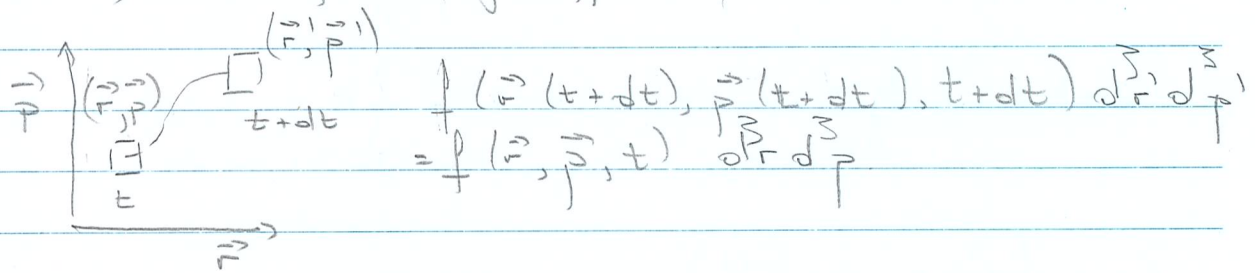 (r⃗', p⃗')
p⃗
(r⃗, p⃗)
t+dt
t
r⃗
f (r⃗ (t+dt), p⃗ (t+dt), t+dt) d³r' d³p'
= f (r⃗, p⃗, t) d³r d³p